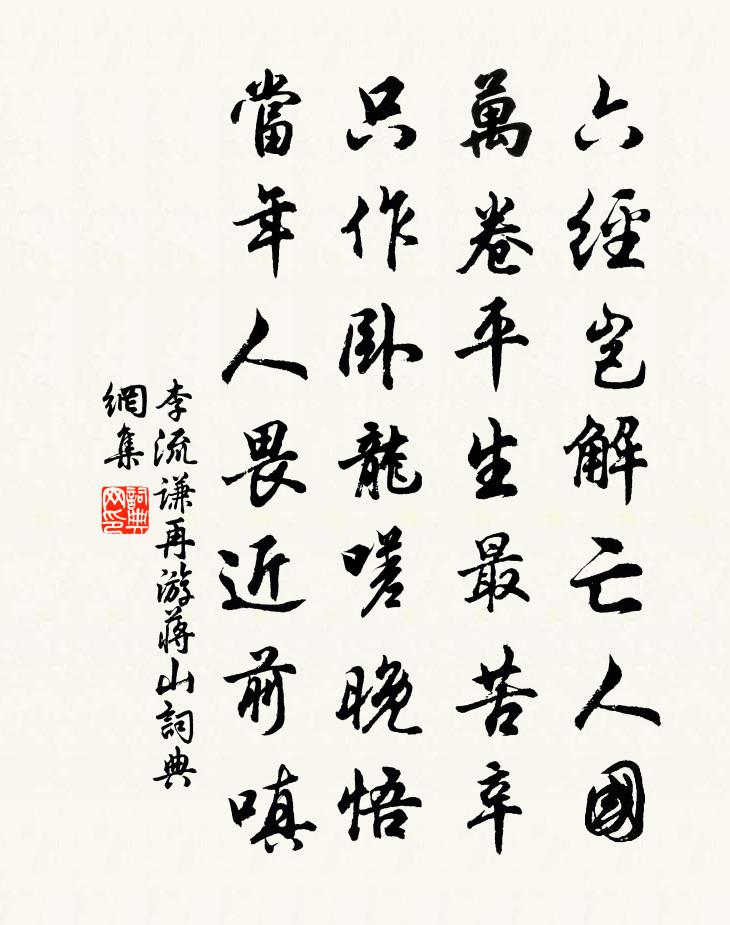 六經豈解亡人國
萬卷平生最苦辛
只作臥龍嗟晚悟
當年人畏近前嗔
李流謙再游蔣山詞典
網集
詞典網印